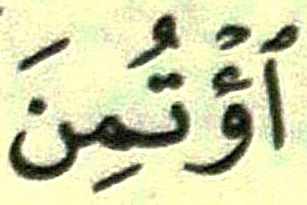 ٱُؤْتُمِنَ